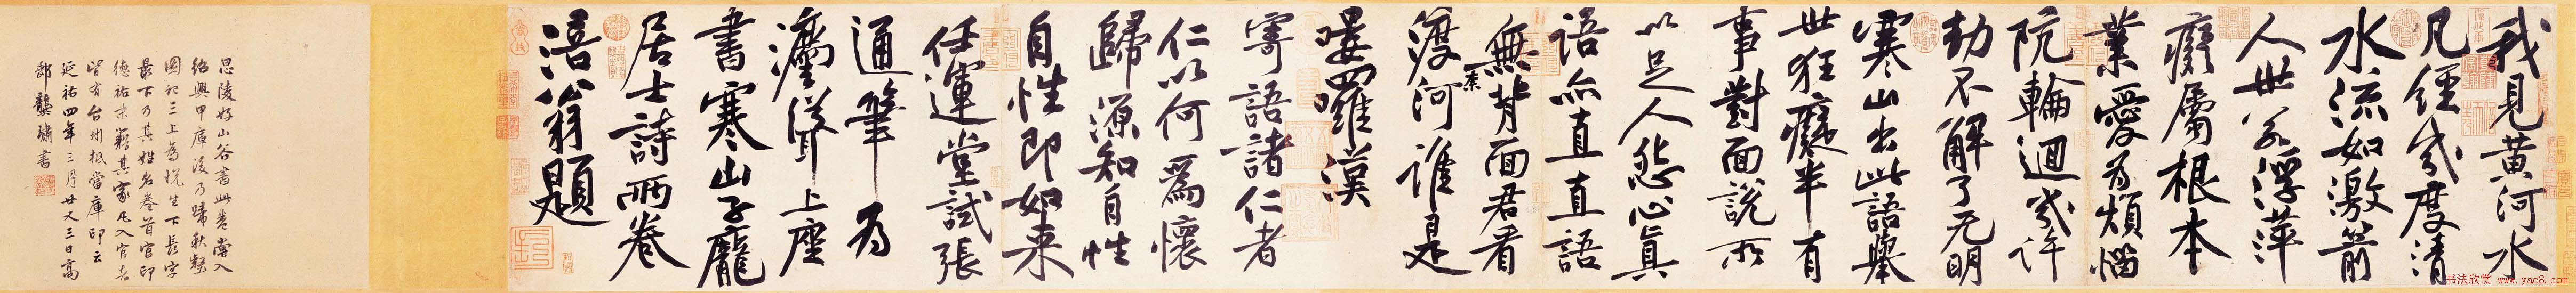 我見黃河水
凡經幾度清
水流如激箭
人世若浮萍
癡屬根本
業愛為煩惱
阬輪迴幾許
劫不解了无明
寒山出此語舉
世狂癡半有
事對面說所
以足人怨心真
語亦直直語
無背面君看
渡柰河誰是
嘍囉漢
寄語諸仁者
仁以何為懷
歸源知自性
自性即如来
任運堂試張
通筆為
聳上座
書寒山子龐
居士詩兩卷
涪翁題
思陵好山谷書此卷嘗入
紹興甲庫後乃歸秋壑
圖記三上為悅生下長字
最下乃其姓名卷首官印
德祐末籍其家凡入官者
皆有台州抵當庫印云
延祐四年三月廿又三日高
郵龔璛書
书法欣赏 www.yac8.com